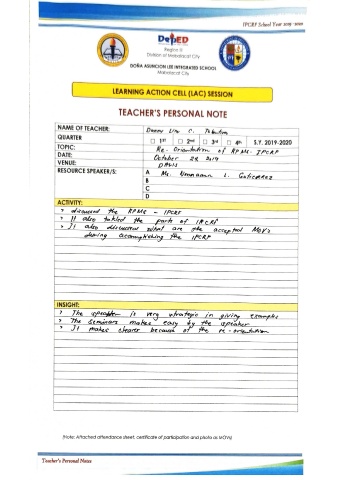 IPCRF School Year 2019 -2020
DepED
Region III
Division of Mabalacat City
DOÑA ASUNCION LEE INTEGRATED SCHOOL
Mabalacat City
LEARNING ACTION CELL (LAC) SESSION
TEACHER'S PERSONAL NOTE
NAME OF TEACHER: C.
QUARTER □ 1st □ 2nd □ 3rd □ 4th S.Y. 2019-2020
TOPIC: Re-Orientation of RPMS-IPCRF
DATE: October 2019
VENUE: DALIS
RESOURCE SPEAKER/S: A Ms. L. Gutierrez
B
C
D
ACTIVITY:
> discussed the RPMS - IPCRF
> It also tackled the parts of IPCRF
> It also discussed what are the accepted MOVs
during accomplishing the IPCRF
INSIGHT:
> The speaker is very strategic in giving examples
> The seminars makes easy by the speaker
> It makes clearer because of the re-orientation
(Note: Attached attendance sheet, certificate of participation and photo as MOVs)
Teacher's Personal Notes